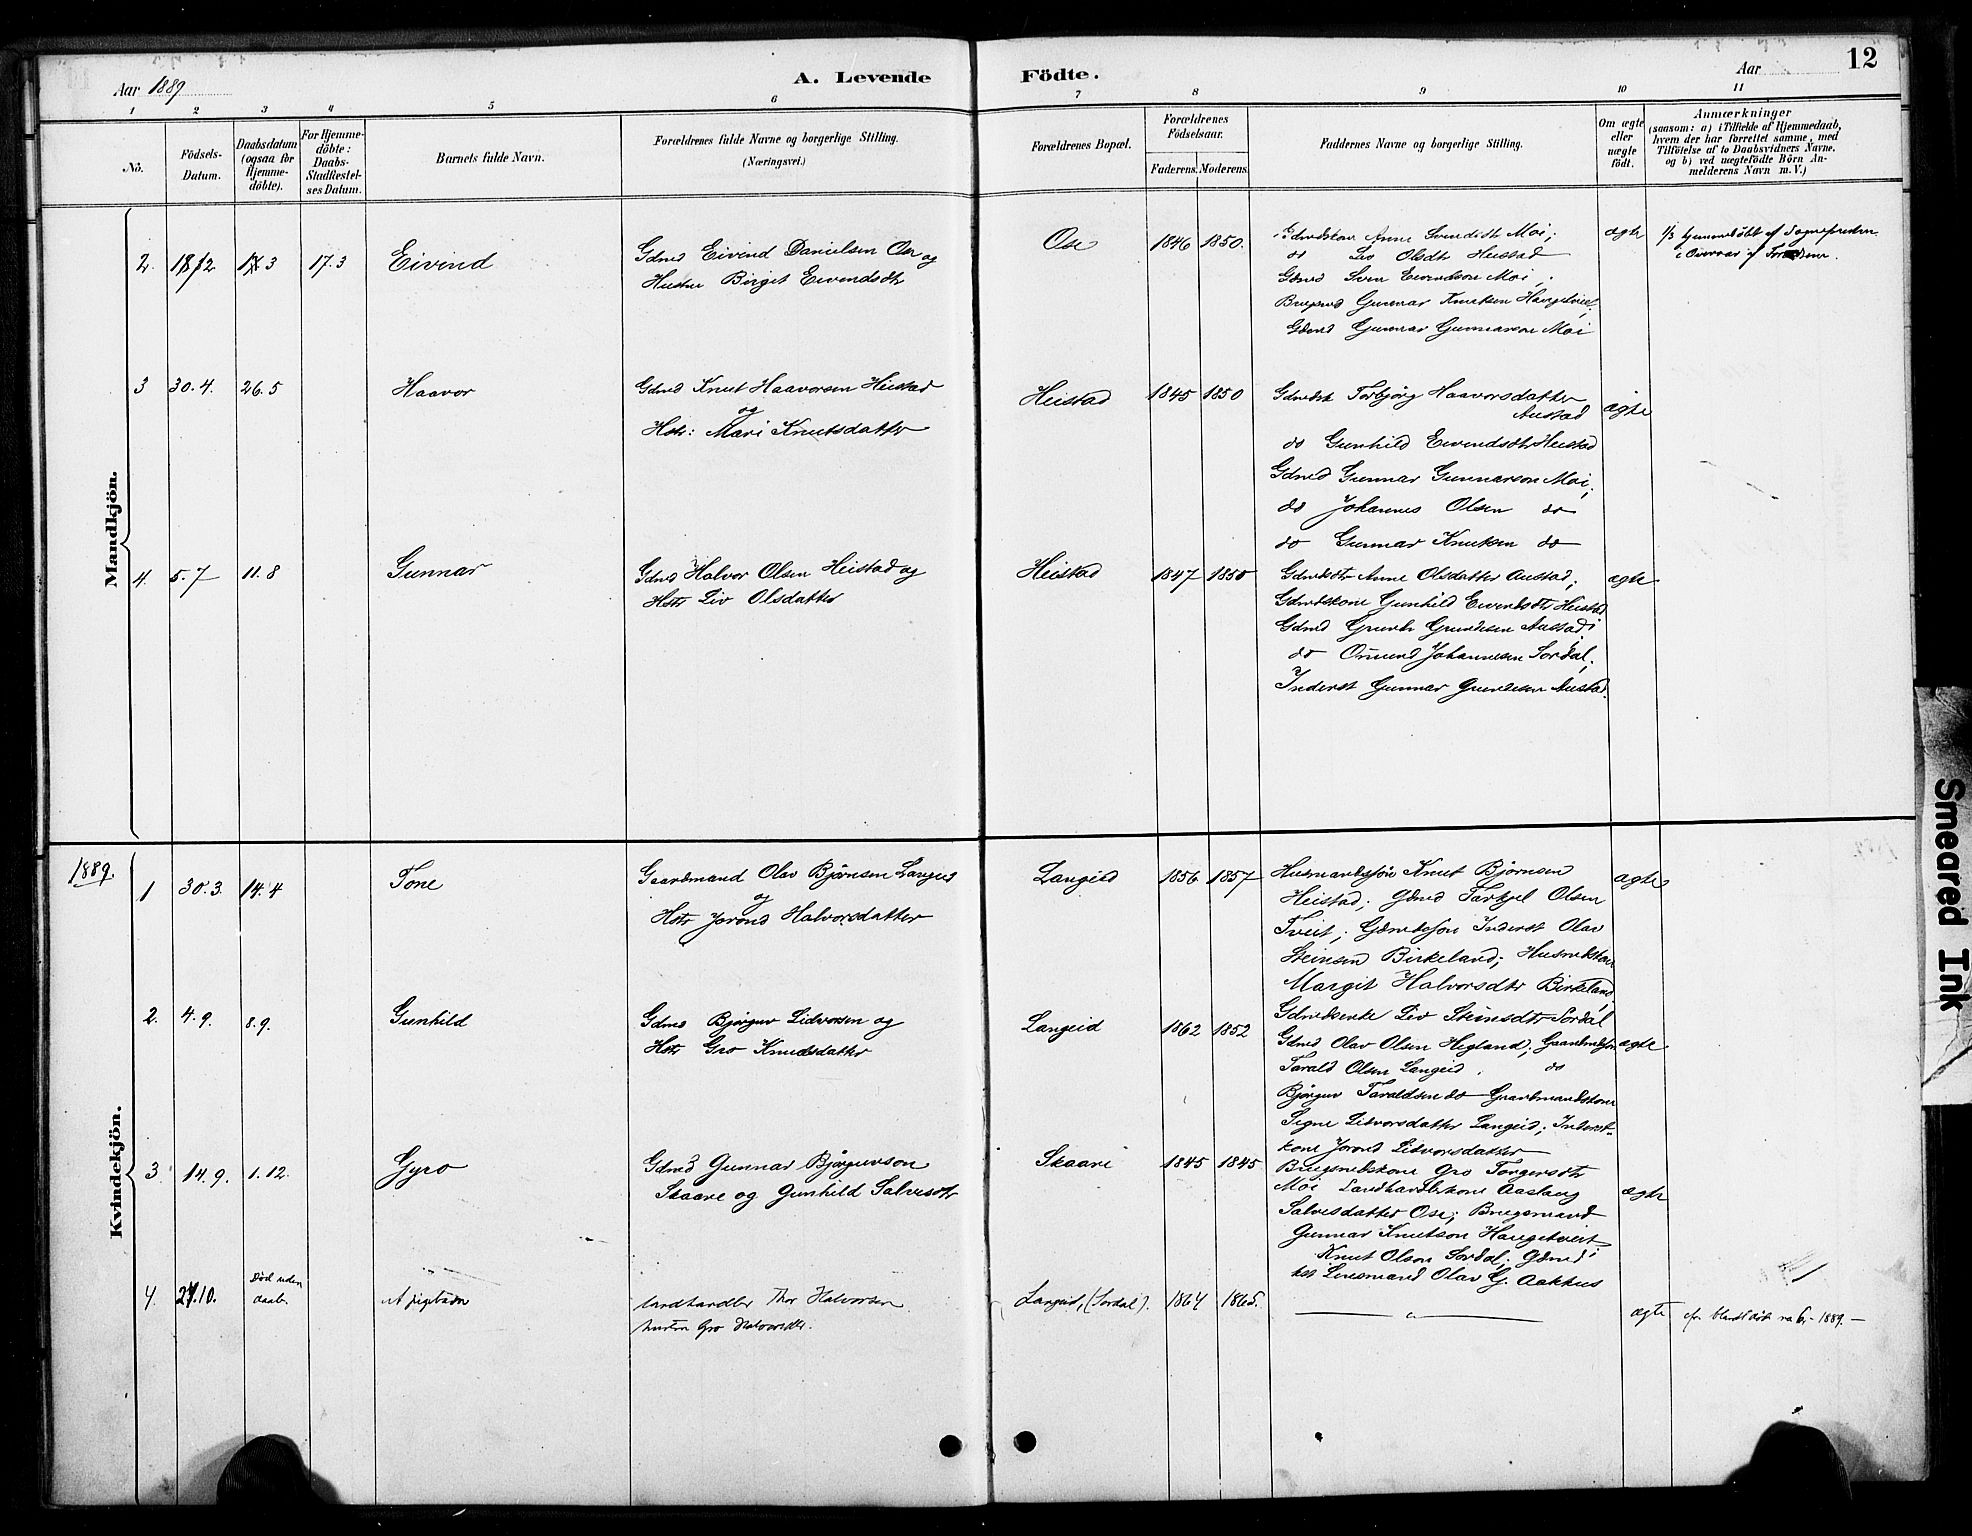 12
A. Levende Födte.
Aar 1889
Aar
1 2 3 4 5 6 7 8 9 10 11
No.
Födsels-
Datum.
Daabsdatum
(ogsaa for
Hjemme-
döbte).
For Hjemme-
döbte:
Daabs-
Stadfæstel-
ses Datum.
Barnets fulde Navn.
Forældrenes fulde Navne og borgerlige Stilling.
(Næringsvei.)
Forældrenes Bopæl.
Forældrenes
Födselsaar.
Faderens. Moderens.
Faddernes Navne og borgerlige Stilling.
Om ægte
eller
uægte
födt.
Anmærkninger
(saasom: a) i Tilfælde af Hjemmedaab,
hvem der har forrettet samme, med
Tilföielse af to Daabsvidners Navne.
og b) ved uægtefödte Börn An-
melderens Navn m. V.)
Mandkjön.
2. 3 17.3 Eivind
Gdmd Eivind Danielsen Ose og
Hustru Birgit Eivendsdtr
Ose 1846 1850.
Gdmdskone Anne Svendsdtr Moi;
do Liv Olsdtr Heistad
Gdmd Sven Eivendson Moi;
Brugsmd Gunnar Knutsen Haugetveit,
Gdmd Gunnar Gunnarson Moi
ægte
1/3 hjemmedöbt af Sognepresten
i Overvær af Forældrene.
3 30.4. 26.5 Haavor
Gdmd Knut Haavorsen Heistad
og
Hstr: Mari Knutsdatter
Heistad 1845 1850
Torbjörg Haavorsdatter
Austad
do Gunhild Eivendsdtr Heistad
Gdmd Gunnar Gunnarson Moi;
do Johannes Olsen do
do Gunnar Knutsen do
ægte
4. 5.7 11.8 Gunnar
Gdmd Halvor Olsen Heistad og
Hstr Liv Olsdatter
Heistad 1847 1850
Anne Olsdatter Austad;
Gdmdskone Gunhild Eivendsdtr Heistad
Gdmd Austad;
do Omund Johannesen Sordal;
Inderst Gunnar Austad.
ægte
1889.
Kvindekjön.
1 30.3. 14.4 Tone
Gaardmand Olav Bjørnsen Langeid
og
Hstr Jorond Halvorsdatter
Langeid 1856 1857
Husmandssøn Knut Bjørnsen
Heistad; Gdmd Tarkjel Olsen
Tveit; Gdmdsøn Inderst Olav
Steinsen Birkeland; Husmdskone
Margit Halvorsdtr Birkeland
ægte
2. 4.9. 8.9. Gunhild
Gdmd Bjørguv Lidvorsen og
Hstr Gro Knudsdatter
Langeid 1862 1852
Gdmdsenke Liv Steinsdtr Sordal
Gdmd Olav Olsen Hegland; Gaardmdsøn
Tarald Olsen Langeid. do
Bjørguv Taraldsen do Gaardmandskone
Signe Lidvorsdatter Langeid; Inderst-
kone Jorond Lidvorsdatter
ægte
3. 14.9. 1.12. Gyro
Gdmd Gunnar Bjørguvson
Skaare og Gunhild Salvesdtr
Skaare 1845 1845
Brugsmdskone Gro Torgersdtr
Moi Landhandlerkone Aaslaug
Salvesdatter Ose; Brugsmand
Gunnar Knutson Haugetveit
Knut Olson Sordal; Gdmd
Lensmand Olav G. Aakhus
ægte
4. 27.10. Død uden
daab. et pigebarn
landhandler Thor Halvorsen
hustru Gro Halvorsdtr.
Langeid, (Sordal). 1864 1865.
ægte cfr. blandt døde no 6 - 1889. —
Smeared Ink